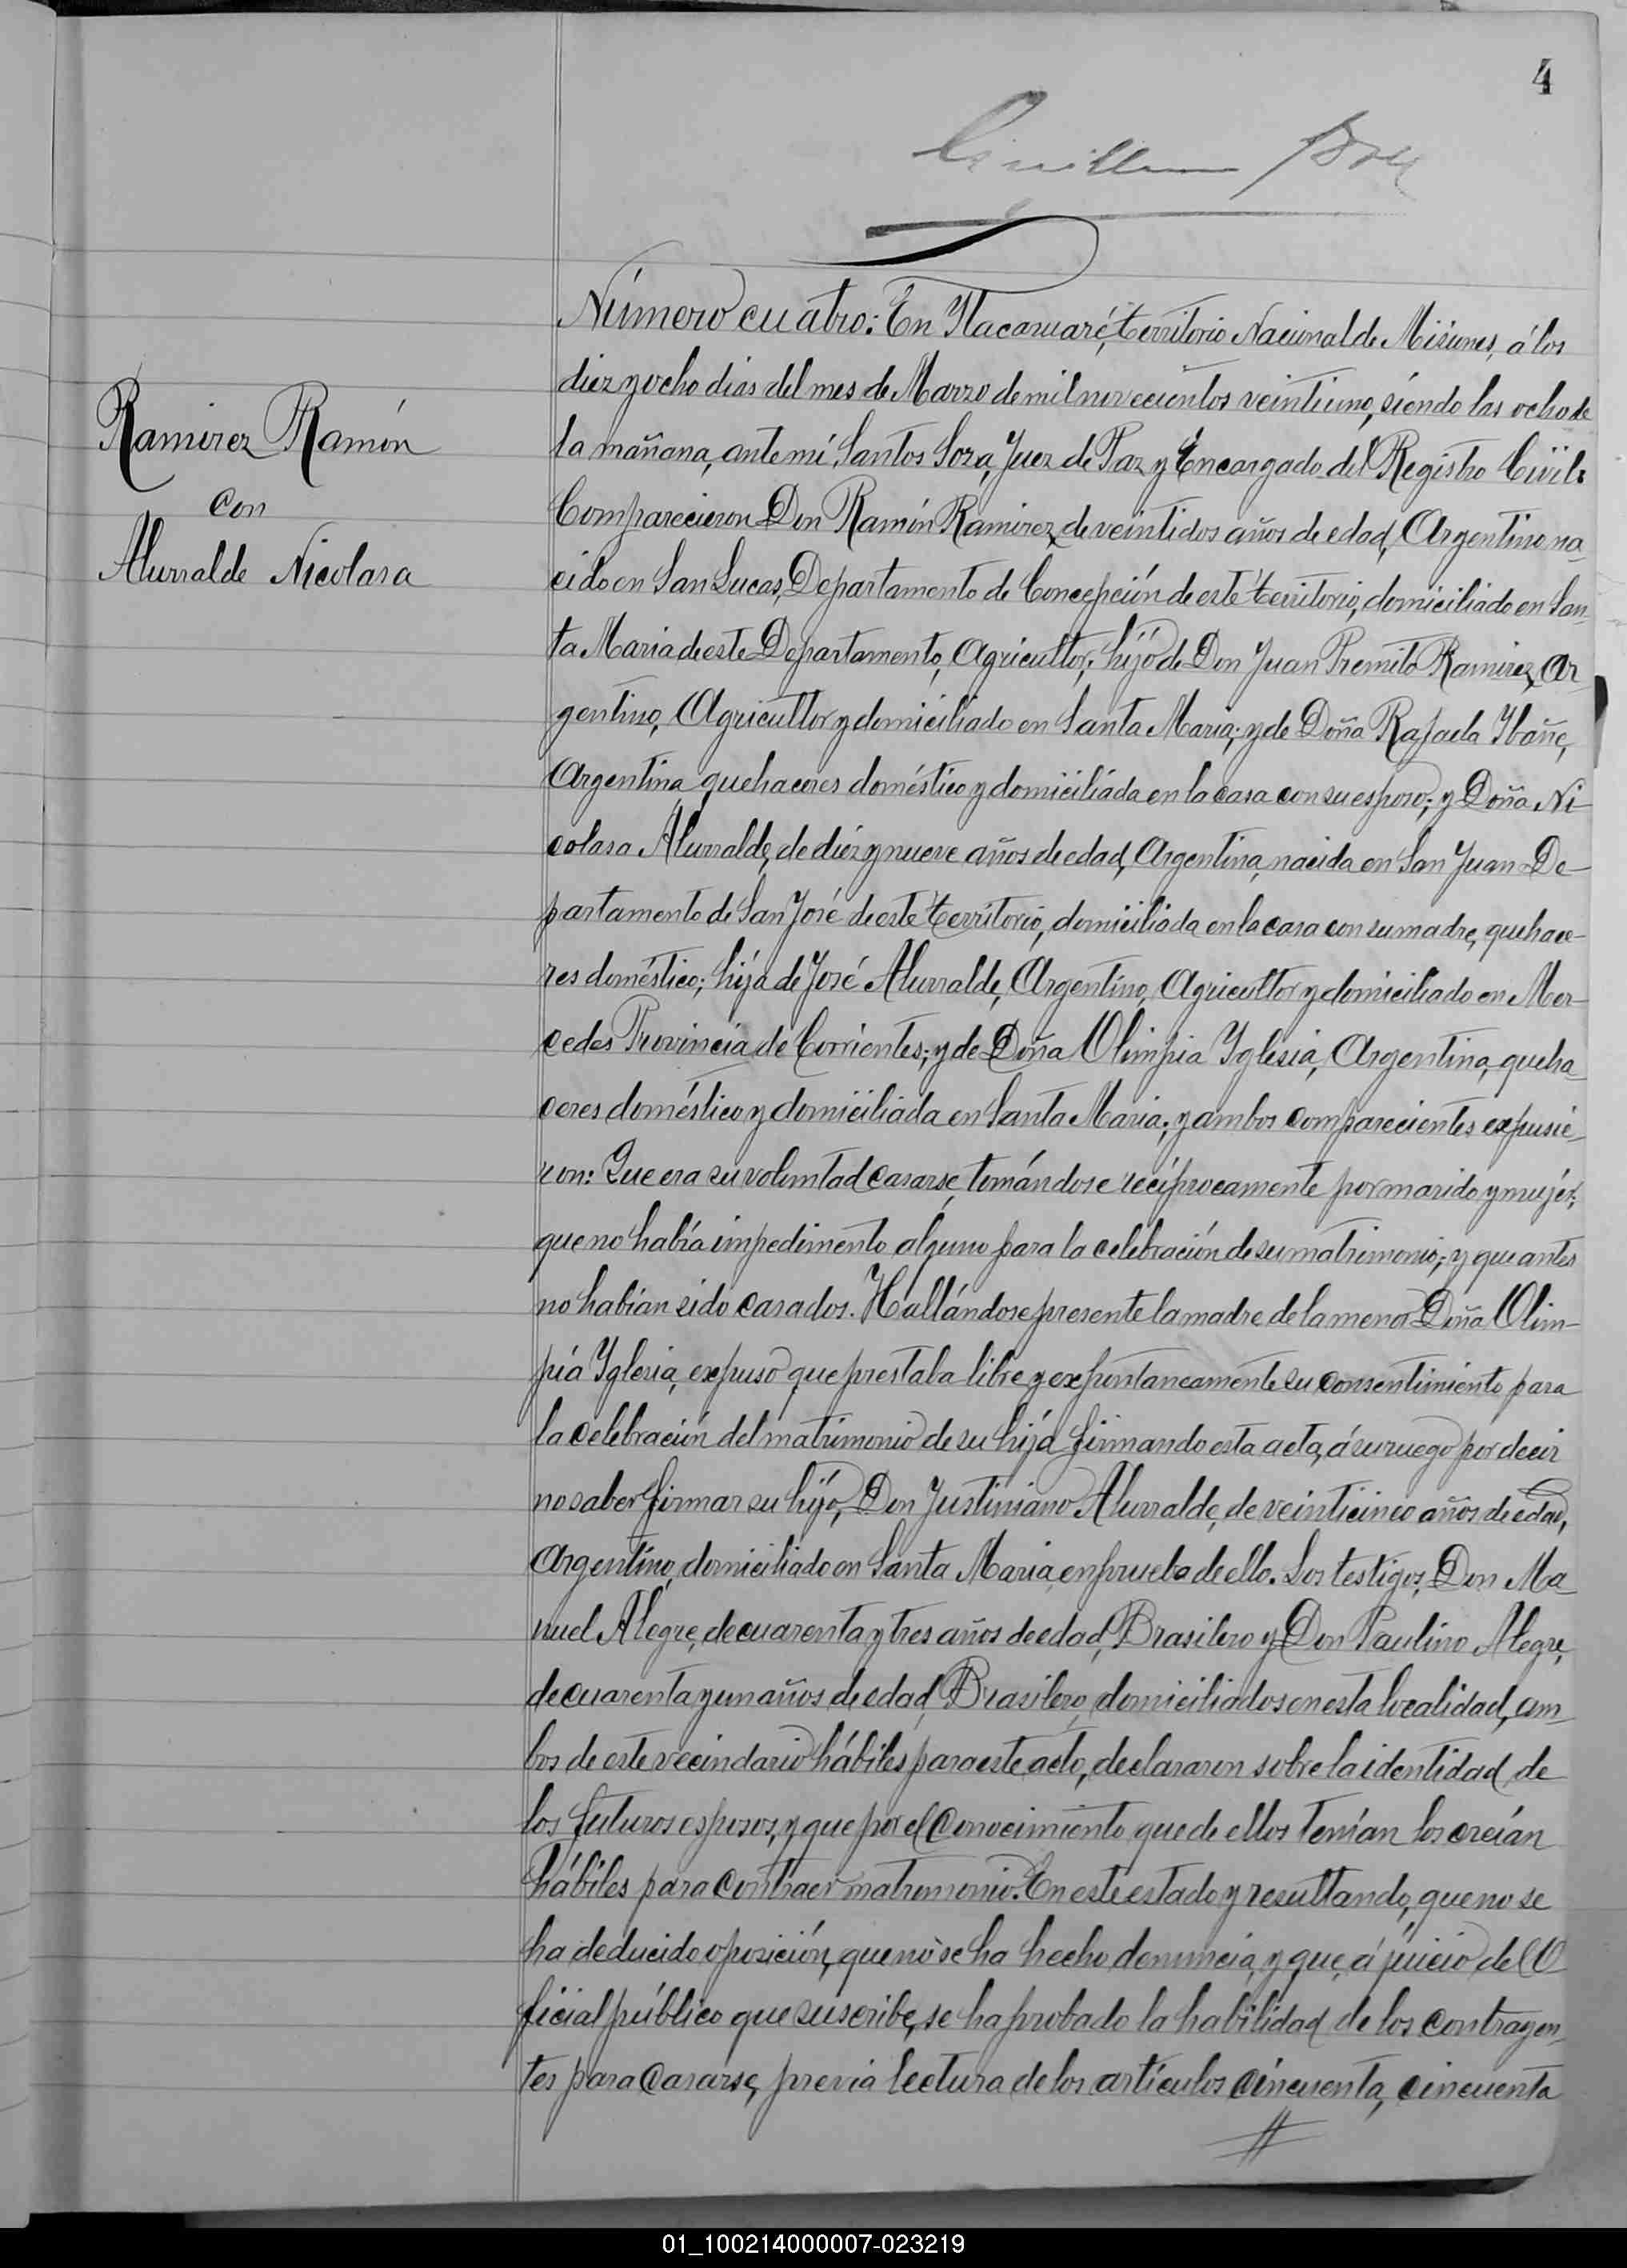 4
Número cuatro: En Itacaruaré, territorio Nacional de Misiones, á los
diez y ocho dias del mes de Marzo de mil novecientos veintiuno, siéndo las ocho de
Ramirez Ramón
la mañana, ante mí, Santos Sosa, Juez de Paz y Encargado del Registro Civil:
con
Comparecieron Don Ramón Ramirez, de veintidos años de edad, Argentino na-
Alurralde Nicolasa
cido en San Lucas, Departamento de Concepción de esté territorio, domiciliado en San-
ta Maria de este Departamento, Agricultor; hijo de Don Juan Premito Ramirez, Ar-
gentino, Agricultor y domiciliado en Santa Maria; y de Doña Rafaela Ybañe,
Argentina quehaceres doméstico y domiciliada en la casa con su esposo; y Doña Ni-
colasa Alurralde, de diéz y nueve años de edad, Argentina, nacida en San Juan De-
partamento de San José de este territorio, domiciliada en la casa con su madre, quehace-
res doméstico; hija de José Alurralde, Argentino, Agricultor y domiciliado en Mer-
cedes Provincia de Corrientes; y de Doña Olimpia Yglesia, Argentina, queha-
ceres doméstico y domiciliada en Santa Maria; y ambos comparecientes expusie-
ron: Que era su voluntad casarse, tomándose recíprocamente por marido y mujer;
que no había impedimento alguno para la celebración de su matrimonio; y que antes
no habian sido casados. Hallándose presente la madre de la menor Doña Olim-
pia Yglesia, expuso que prestaba libre y expontaneamente su consentimiento para
la celebración del matrimonio de su hija firmando esta acta, á su ruego por decir
no saber firmar su hijo, Don Justiniano Alurralde, de veinticinco años de edad,
Argentino, domiciliado en Santa Maria, en prueba de ello. Los testigos, Don Ma-
nuel Alegre, de cuarenta y tres años de edad, Brasilero y Don Paulino Alegre,
de cuarenta y un años de edad, Brasilero, domiciliados en esta localidad, am-
bos de este vecindario hábiles para este acto, declararon sobre la identidad de
los futuros esposos, y que por el conocimiento que de ellos tenían los creían
hábiles para contraer matrimonio. En este estado y resultando, que no se
ha deducido oposición, que no se ha hecho denuncia, y que, á juicio del O-
ficial público que suscribe, se ha probado la habilidad de los contrayen-
tes para casarse, previa lectura de los artículos cincuenta, cincuenta
01_100214000007-023219